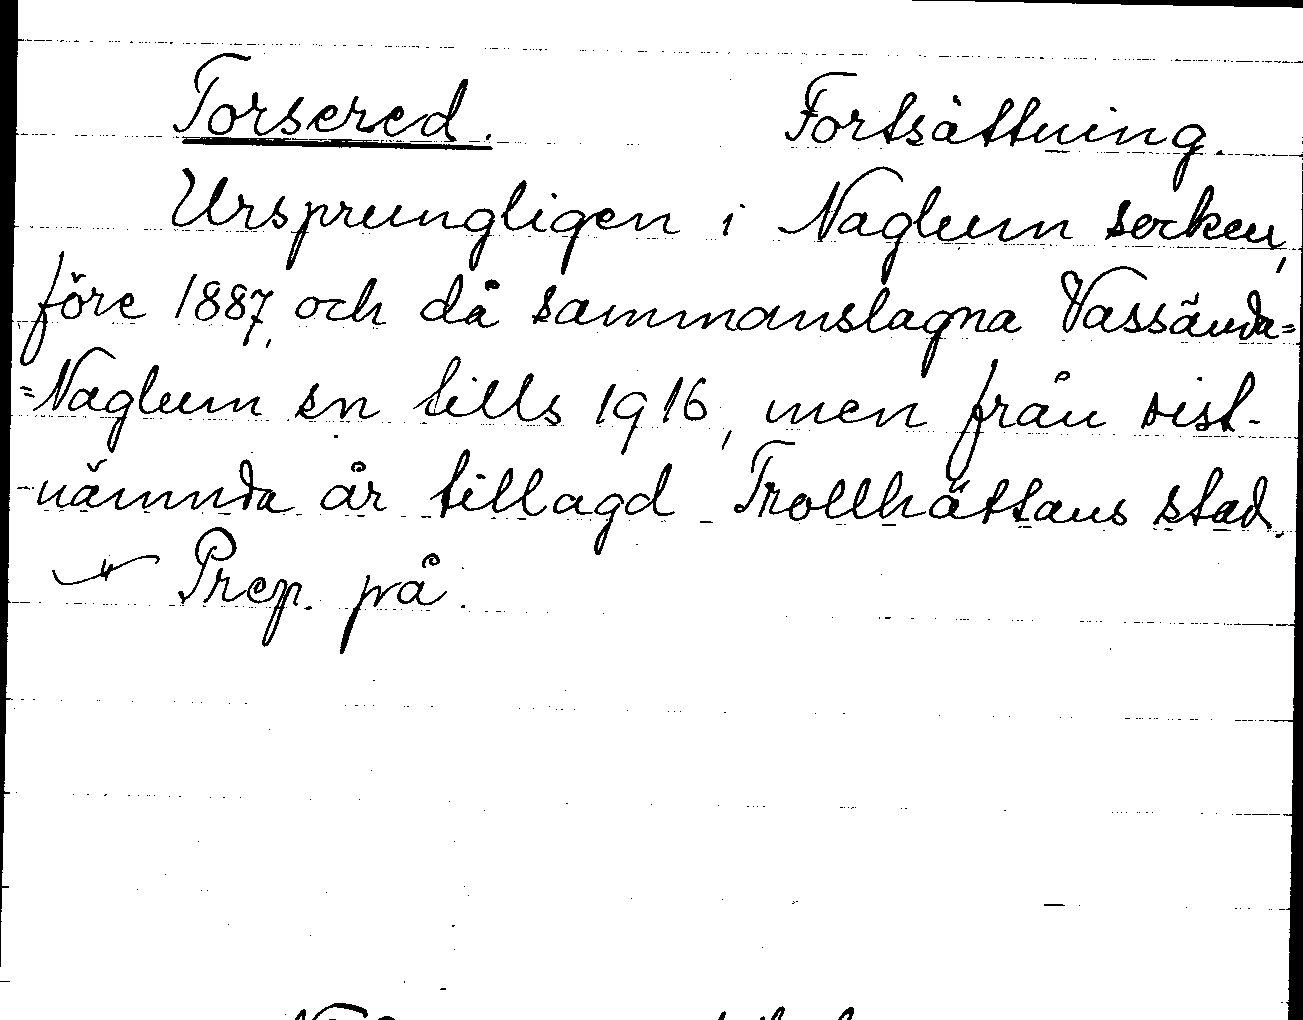 Torsered. Fortsättning.
Ursprungligen i Naglum socken,
före 1887, och då sammanslagna Vassända=
=Naglum sn tills 1916, men från sist-
-nämnda år tillagd Trollhättans stad.
Prep. på.